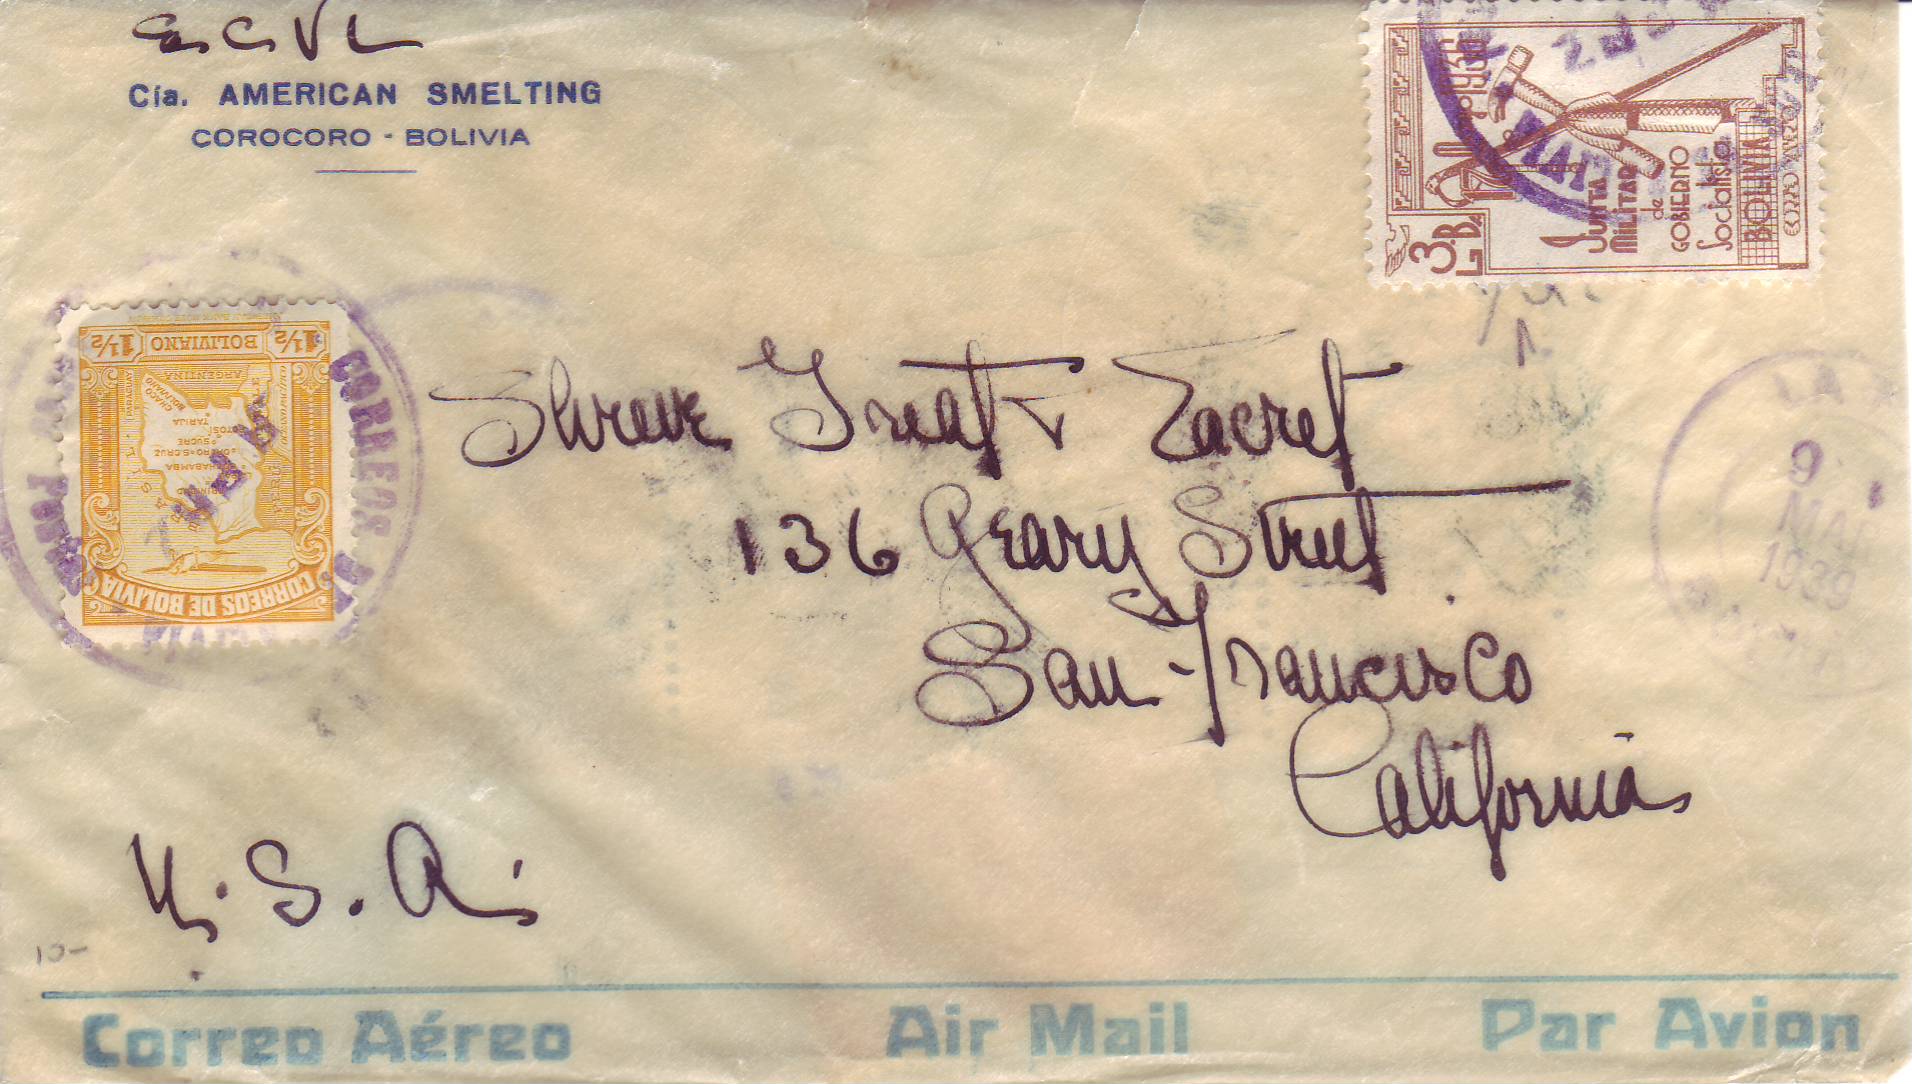 Cía. AMERICAN SMELTING
COROCORO - BOLIVIA
3 Bs.
JUNTA
MILITAR
de
GOBIERNO
Socialista
BOLIVIA
1½ BOLIVIANO 1½
ARGENTINA
PARAGUAY
CHACO BOLIVIANO
TARIJA
SUCRE
CORREOS DE BOLIVIA
CORREOS
Shreve Treat & Eacret
136 Geary Street
San Francisco
California
9
MAR
1939
U. S. A.
10-
Correo Aéreo Air Mail Par Avion